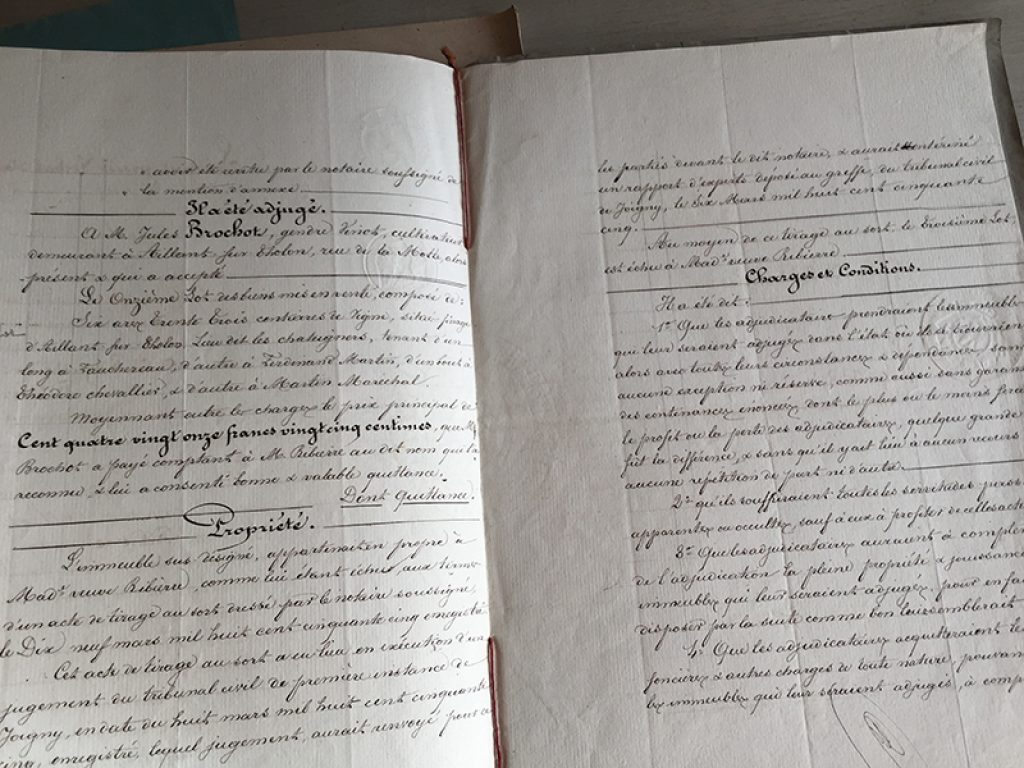 avoir été rendu par le notaire soussigné de
la mention d'annexe
Il a été adjugé.
A M. Jules Brochot, gendre Viriot, cultivateur
demeurant à Aillant sur Tholon, rue de la Motte, alors
présent & qui a accepté
Le Onzième Lot des biens mis en vente, composé de:
Six ares Trente Trois centiares de Vigne, situé finage
d'Aillant sur Tholon Lieu dit les chataigners, tenant d'un
long à Fauchereau, d'autre à Ferdinand Martin, d'un bout à
Théodore chevallier, & d'autre à Martin Marechal.
Moyennant outre les charges le prix principal de
Cent quatre vingt onze francs vingt cinq centimes, que M.
Brochot a payé comptant à M. Ribière au dit nom qui l'a
reconnu, & lui a consenti bonne & valable quittance.
Dont Quittance.
Propriété.
L'immeuble sus désigné, appartenait en propre à
Mad.e veuve Ribière, comme lui étant échu, aux termes
d'un acte de tirage au sort dressé par le notaire soussigné,
le Dix neuf mars mil huit cent cinquante cinq enregistré
Cet acte de tirage au sort a eu lieu en exécution d'un
jugement du tribunal civil de première instance de
Joigny, en date du huit mars mil huit cent cinquante
cinq, enregistré, lequel jugement, aurait renvoyé
les parties devant le dit notaire, & aurait entériné
un rapport d'experts déposé au greffe, du tribunal civil
de Joigny, le Six Mars mil huit cent cinquante
cinq.
Au moyen de ce tirage au sort le Troisième Lot,
est échu à Mad.e veuve Ribierre
Charges et Conditions.
Il a été dit:
1° Que les adjudicataires prendraient les immeubles
qui leur seraient adjugés dans l'état où ils se trouvaient
alors avec toutes leurs circonstances & dépendances, sans
aucune exception ni réserve, comme aussi sans garantie
des contenances énoncées dont le plus ou le moins ferait
le profit ou la perte des adjudicataires, quelque grande
fût la différence, & sans qu'il y ait lieu à aucun recours
aucune répétition de part ni d'autre.
2° qu'ils souffriraient toutes les servitudes
apparentes ou occultes, sauf à eux à profiter de celles actives
3° Que les adjudicataires auraient à compter
de l'adjudication la pleine propriété & jouissance
immeubles qui leur seraient adjugés, pour en faire
disposer par la suite comme bon leur semblerait
4° Que les adjudicataires acquitteraient les
foncières & autres charges de toute nature, pouvant
les immeubles qui leur seraient adjugés, à compter